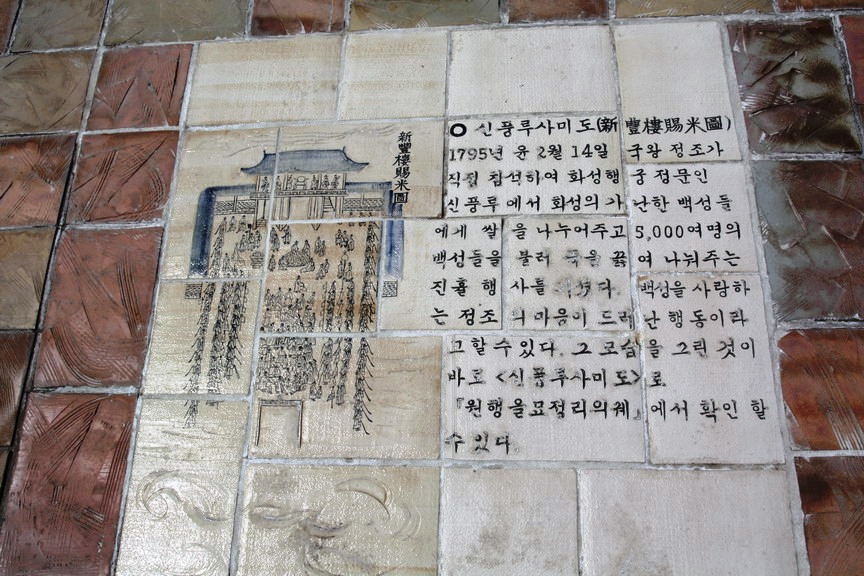 新豐樓賜米圖
신풍루사미도(新豐樓賜米圖)
1795년 윤 2월 14일 국왕 정조가
직접 참석하여 화성행궁 정문인
신풍루에서 화성의 가난한 백성들
에게 쌀을 나누어주고 5,000여명의
백성들을 불러 죽을 끓여 나눠주는
진휼 행사를 하셨다. 백성을 사랑하
는 정조의 마음이 드러난 행동이라
고 할 수 있다. 그 모습을 그린 것이
바로 <신풍루사미도>로
『원행을묘정리의궤』에서 확인 할
수 있다.